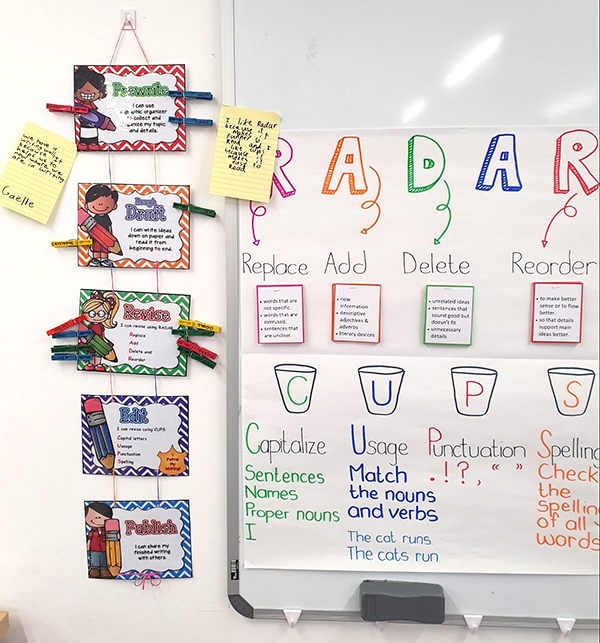 Prewrite
I can use
graphic organizer
to collect and
organize my topic
and details.
We have a
because it
helps us to
know where we
are in writing
Gaelle
I like Radar
because it
makes it
funner to
Read and I
like cups
because it
makes it
easy to
Read
Rough
Draft
I can write ideas
down on paper and
read it from
beginning to end.
Revise
I can revise using RADAR
Replace
Add
Delete and
Reorder
Edit
I can revise using CUPS
Capital letters
Usage
Punctuation
Spelling
I
my
Writing!
Publish
I can share my
finished writing
with others.
R A D A R
Replace Add Delete Reorder
• words that are
not specific.
• words that are
overused.
• sentences that
are unclear.
• new
information
• descriptive
adjectives &
adverbs
• literary devices
• unrelated ideas
• sentences that
sound good but
doesn't fit
• unnecessary
details
• to make better
sense or to flow
better.
• so that details
support main
ideas better.
C U P S
Capitalize
Sentences
Names
Proper nouns
I
Usage
Match
the nouns
and verbs
The cat runs.
The cats run.
Punctuation
. ! ? , “ ”
Spelling
Check
the
spelling
of all
words